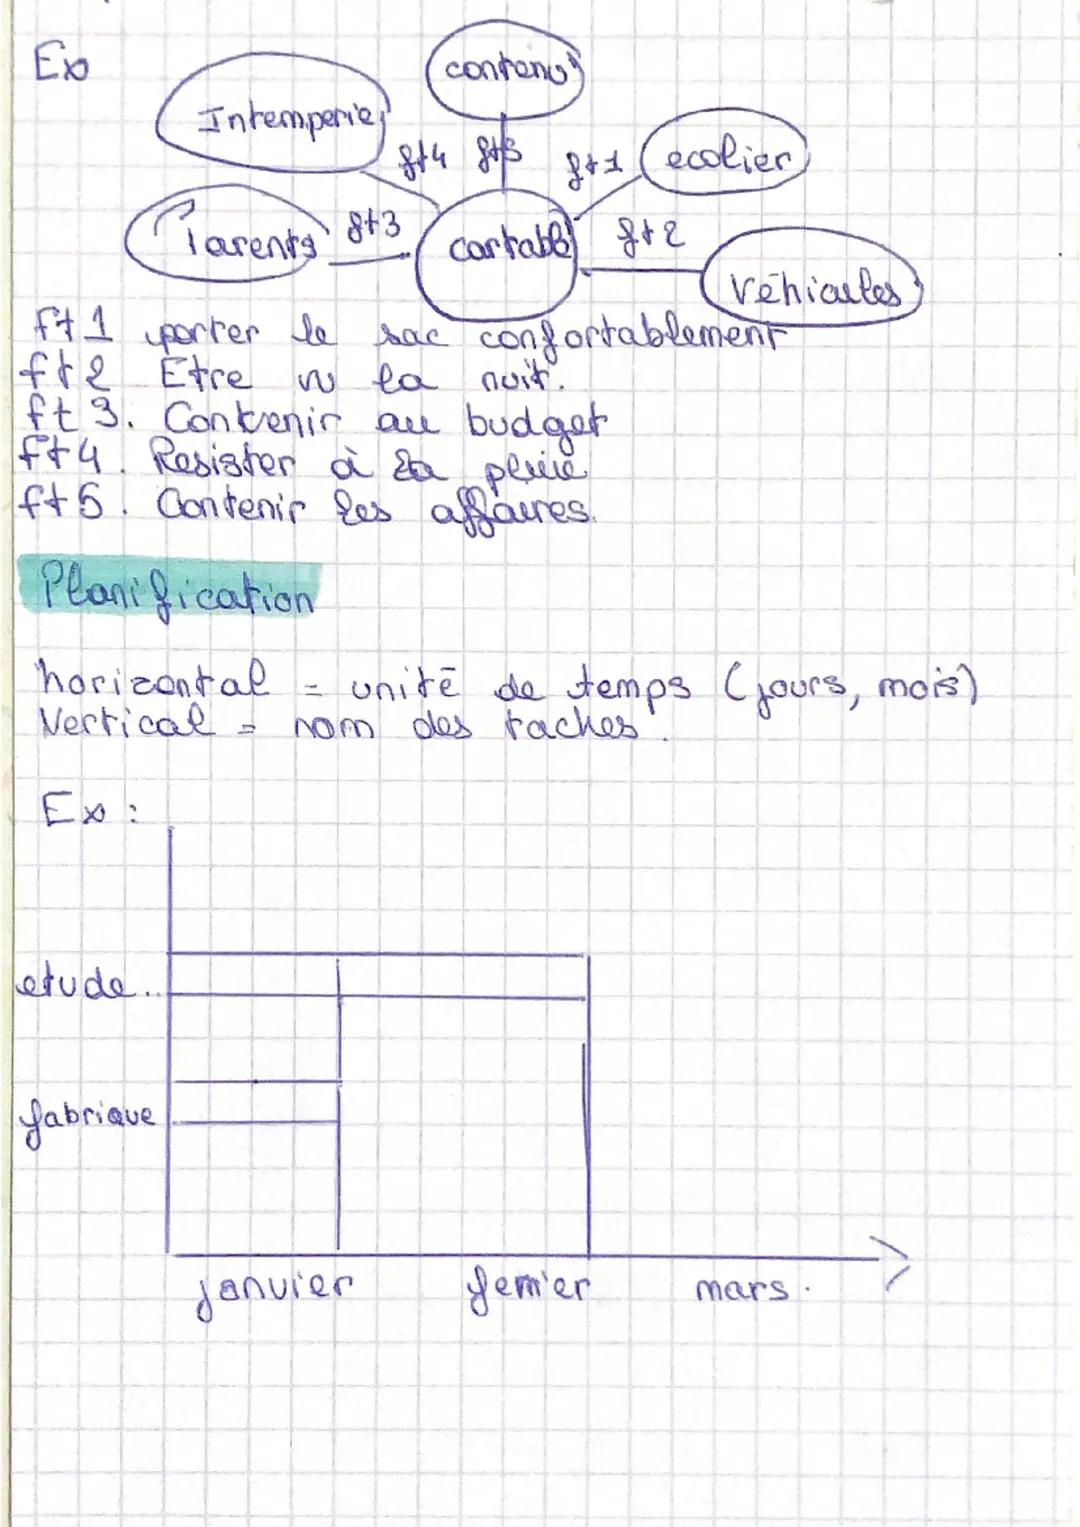 Ex
contenu
Intemperie
ft4 ft5 ft1 ecolier
Parents ft3 cartable ft2
véhicules
ft1 porter le sac confortablement
ft2 Etre vu la nuit.
ft3. Contenir au budget
ft4. Resister à la pluie
ft5. Contenir les affaires.
Planification
horizontal = unité de temps (jours, mois)
Vertical = nom des taches.
Ex :
etude..
fabrique
janvier fevrier mars.